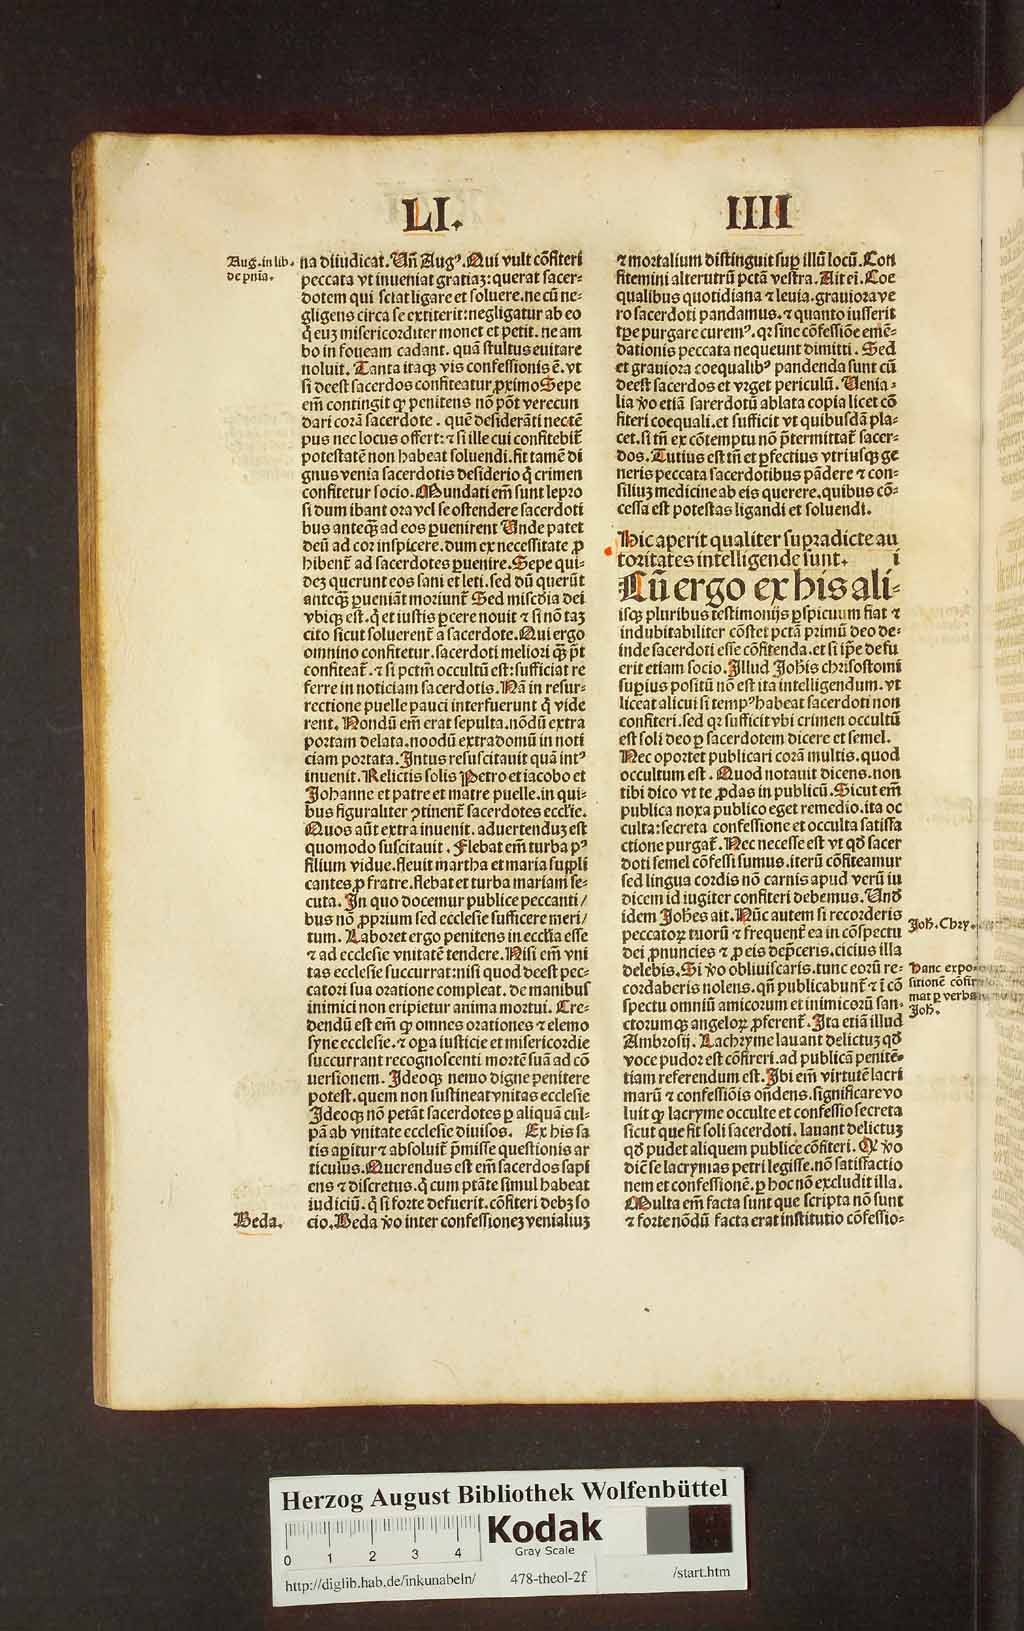 LI. IIII
Aug. in lib.
de pnia.
na diiudicat. Vñ Augꝰ. Qui vult cõfiteri
peccata vt inueniat gratiaꝫ: querat sacer-
dotem qui sciat ligare et soluere. ne cũ ne-
gligens circa se extiterit: negligatur ab eo
q̃ euꝫ misericorditer monet et petit. ne am
bo in foueam cadant. quã stultus euitare
noluit. Tanta itaqꝫ vis confessionis ẽ. vt
si deest sacerdos confiteatur ꝓximo Sepe
em̃ contingit ꝙ penitens nõ põt verecun
dari corã sacerdote. quẽ desiderãti nec tẽ
pus nec locus offert: ⁊ si ille cui confitebit̃
potestatẽ non habeat soluendi. fit tamẽ di
gnus venia sacerdotis desiderio q̃ crimen
confitetur socio. Mundati em̃ sunt lepro
si dum ibant ora vel se ostendere sacerdoti
bus anteqꝫ̃ ad eos ꝑuenirent Unde patet
deũ ad cor inspicere. dum ex necessitate ꝓ
hibent̃ ad sacerdotes ꝑuenire. Sepe qui-
deꝫ querunt eos sani et leti. sed dũ querũt
anteqꝫ̃ ꝑueniãt moriunt̃ Sed misc̃dia dei
vbiqꝫ est. q̃ et iustis ꝑcere nouit ⁊ si nõ taꝫ
cito sicut soluerent̃ a sacerdote. Qui ergo
omnino confitetur. sacerdoti meliori qꝫ̃ p̃t
confiteat̃. ⁊ si pctm̃ occultũ est: sufficiat re
ferre in noticiam sacerdotis. Nã in resur-
rectione puelle pauci interfuerunt q̃ vide
rent. Nondũ em̃ erat sepulta. nõdũ extra
portam delata. noodũ extra domũ in noti
ciam portata. Intus resuscitauit quã intꝰ
inuenit. Relictis solis Petro et iacobo et
Johanne et patre et matre puelle. in qui-
bus figuraliter ↄtinent̃ sacerdotes eccl̃ie.
Quos aũt extra inuenit. aduertenduꝫ est
quomodo suscitauit. Flebat em̃ turba pꝰ
filium vidue. fleuit martha et maria suppli
cantes ꝓ fratre. flebat et turba mariam se-
cuta. In quo docemur publice peccanti/
bus nõ ꝓprium sed ecclesie sufficere meri/
tum. Laboret ergo penitens in eccl̃ia esse
⁊ ad ecclesie vnitatẽ tendere. Nisi em̃ vni
tas ecclesie succurrat: nisi quod deest pec-
catori sua oratione compleat. de manibus
inimici non eripietur anima mortui. Cre-
dendũ est em̃ ꝙ omnes orationes ⁊ elemo
syne ecclesie. ⁊ oꝑa iusticie et misericordie
succurrant recognoscenti mortẽ suã ad cõ
uersionem. Ideoqꝫ nemo digne penitere
potest. quem non sustineat vnitas ecclesie
Ideoqꝫ nõ petãt sacerdotes ꝑ aliquã cul-
pã ab vnitate ecclesie diuisos. Ex his sa
tis aꝑitur ⁊ absoluit̃ p̃misse questionis ar
ticulus. Querendus est em̃ sacerdos sapi
ens ⁊ discretus. q̃ cum ptãte simul habeat
iudiciũ. q̃ si forte defuerit. cõfiteri debꝫ so
Beda.
cio. Beda ꝟo inter confessioneꝫ venialiuꝫ
⁊ mortalium distinguit suꝑ illũ locũ. Con
fitemini alterutrũ pctã vestra. Ait ei. Coe
qualibus quotidiana ⁊ leuia. grauiora ve
ro sacerdoti pandamus. ⁊ quanto iusserit
tꝑe purgare curemꝰ. qꝛ sine cõfessiõe emẽ-
dationis peccata nequeunt dimitti. Sed
et grauiora coequalibꝰ pandenda sunt cũ
deest sacerdos et vrget periculũ. Uenia-
lia ꝟo etiã sarerdotũ ablata copia licet cõ
fiteri coequali. et sufficit vt quibusdã pla-
cet. si tñ ex cõtemptu nõ p̃termittat̃ sacer-
dos. Tutius est tñ et ꝑfectius vtriusqꝫ ge
neris peccata sacerdotibus pãdere ⁊ con-
siliuꝫ medicine ab eis querere. quibus cõ-
cessa est potestas ligandi et soluendi.
Hic aperit qualiter supradicte au
toritates intelligende sunt. i
Cũ ergo ex his ali-
isqꝫ pluribus testimonijs ꝑspicuum fiat ⁊
indubitabiliter cõstet pctã primũ deo de-
inde sacerdoti esse cõfitenda. et si ip̃e defu
erit etiam socio. Illud Joh̃is chrisostomi
suꝑius positũ nõ est ita intelligendum. vt
liceat alicui si tempꝰ habeat sacerdoti non
confiteri. sed qꝛ sufficit vbi crimen occultũ
est soli deo ꝑ sacerdotem dicere et semel.
Nec oportet publicari corã multis. quod
occultum est. Quod notauit dicens. non
tibi dico vt te ꝓdas in publicũ. Sicut em̃
publica noxa publico eget remedio. ita oc
culta: secreta confessione et occulta satisfa
ctione purgat̃. Nec necesse est vt qð sacer
doti semel cõfessi sumus. iterũ cõfiteamur
sed lingua cordis nõ carnis apud verũ iu
dicem id iugiter confiteri debemus. Unð
idem Joh̃es ait. Nũc autem si recorderis
Joh̃. Chry.
peccatoꝝ tuorũ ⁊ frequent̃ ea in cõspectu
dei ꝓnuncies ⁊ ꝓ eis dep̃ceris. cicius illa
Hanc expo
delebis. Si ꝟo obliuiscaris. tunc eorũ re-
sitionẽ cõfir
cordaberis nolens. qñ publicabunt̃ ⁊ ĩ cõ
mat ꝑ verba
spectu omniũ amicorum et inimicorũ san-
Joh̃.
ctorumqꝫ angeloꝝ ꝓferent̃. Ita etiã illud
Ambrosij. Lachryme lauant delictuꝫ qð
voce pudor est cõfireri. ad publicã penitẽ-
tiam referendum est. Ibi em̃ virtutẽ lacri
marũ ⁊ confessiõis oñdens. significare vo
luit ꝙ lacryme occulte et confessio secreta
sicut que fit soli sacerdoti. lauant delictuꝫ
qð pudet aliquem publice cõfiteri. Qꝙ ꝟo
dic̃ se lacrymas petri legisse. nõ satisfactio
nem et confessionẽ. ꝑ hoc nõ excludit illa.
Multa em̃ facta sunt que scripta nõ sunt
⁊ forte nõdũ facta erat institutio cõfessio-
Herzog August Bibliothek Wolfenbüttel
Kodak
Gray Scale
0 1 2 3 4
http://diglib.hab.de/inkunabeln/ 478-theol-2f /start.htm